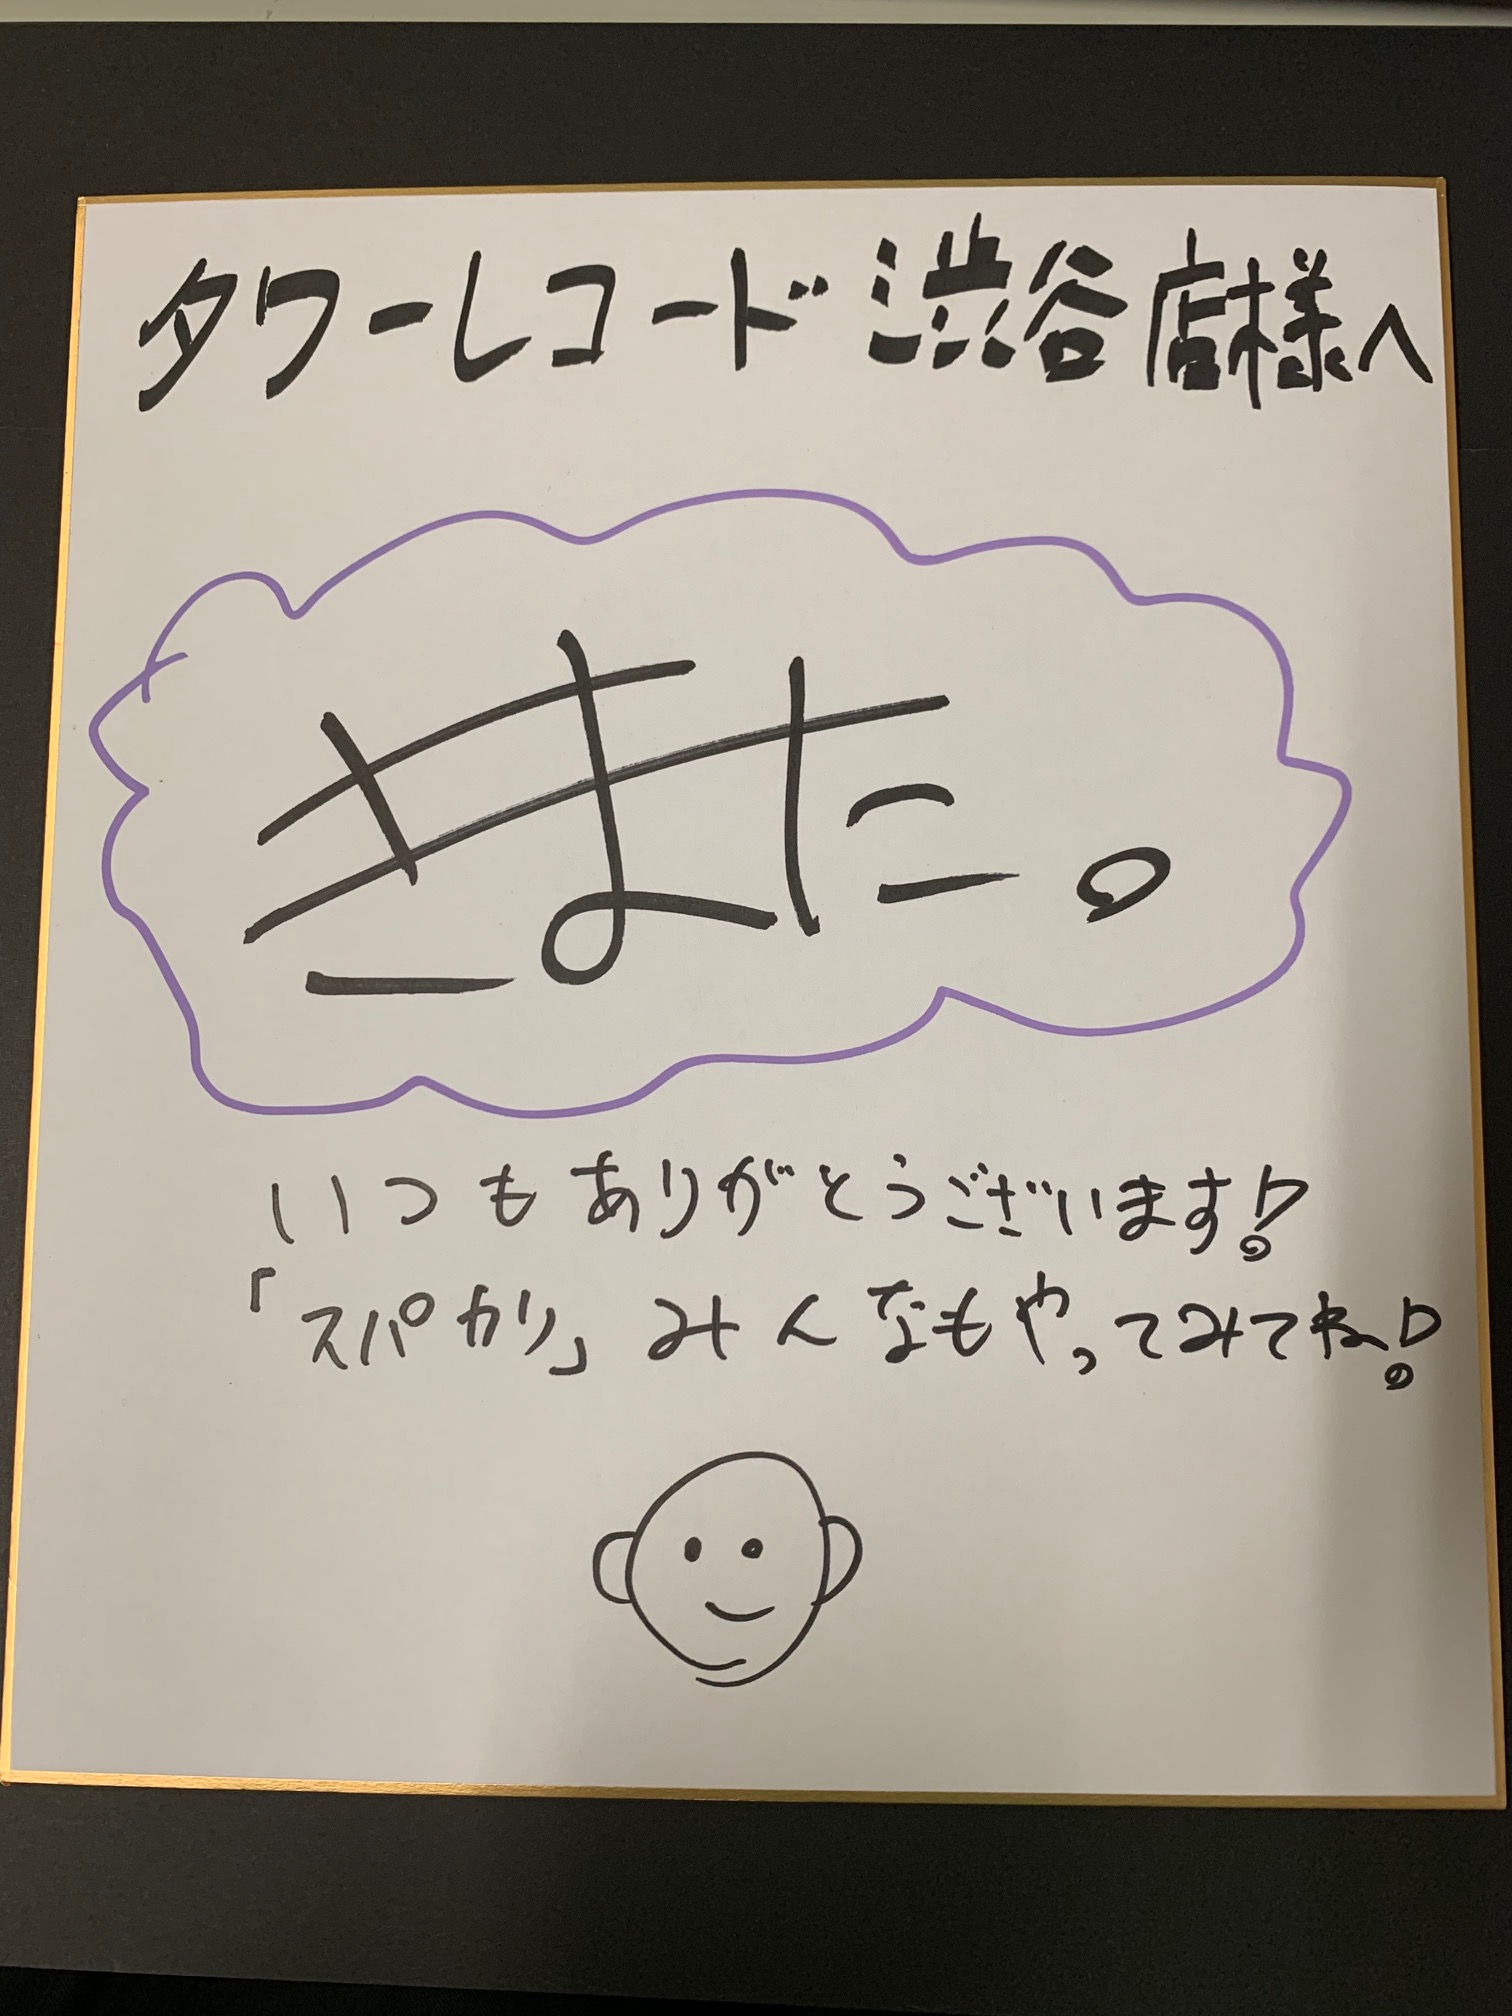 タワーレコード渋谷店様へ
きまた。
いつもありがとうございます!
「スパカリ」みんなもやってみてね!